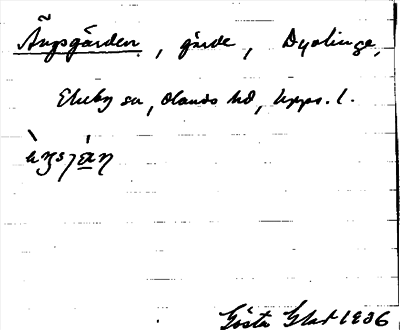 Ängsgården, gärde, Dyalinge,
Ekeby sn, Olands hd, Upps. l.
Gösta Glad 1936